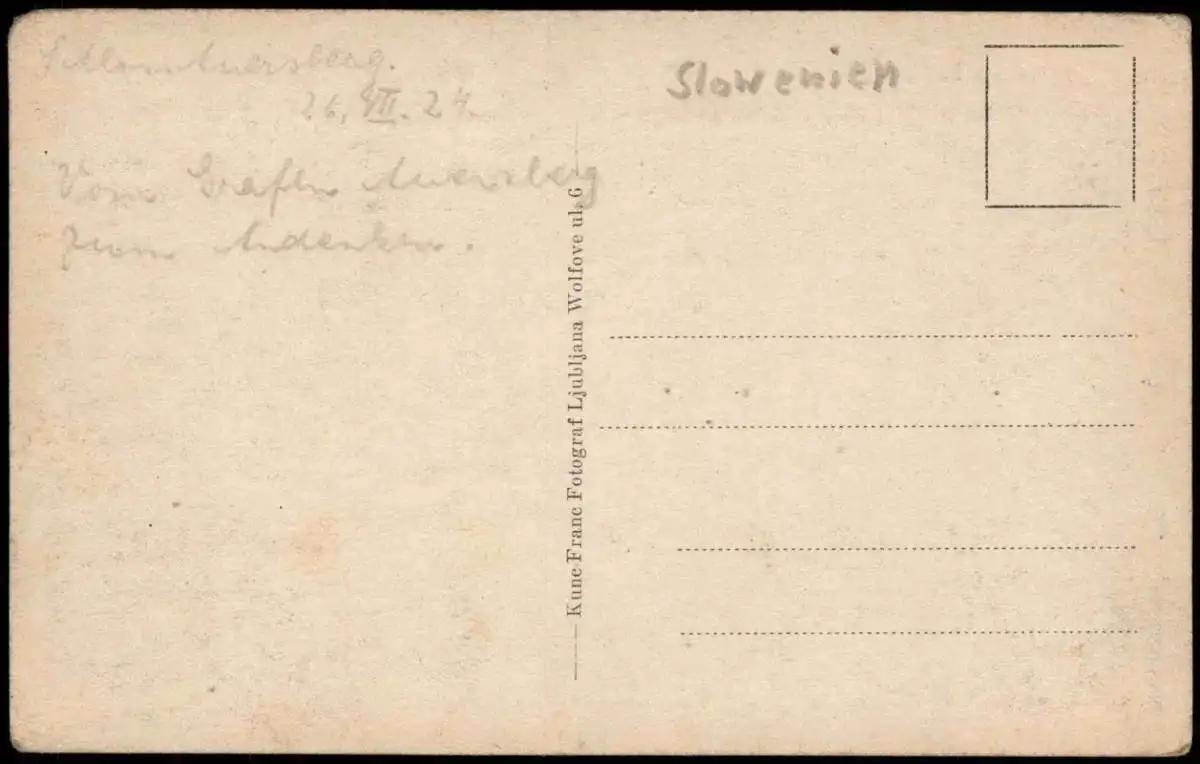 Schloss Auersberg.
26. VII. 24.
Vom Grafen Auersberg
zum Andenken.
Slowenien
Kunc Franc Fotograf Ljubljana Wolfove ul. 6